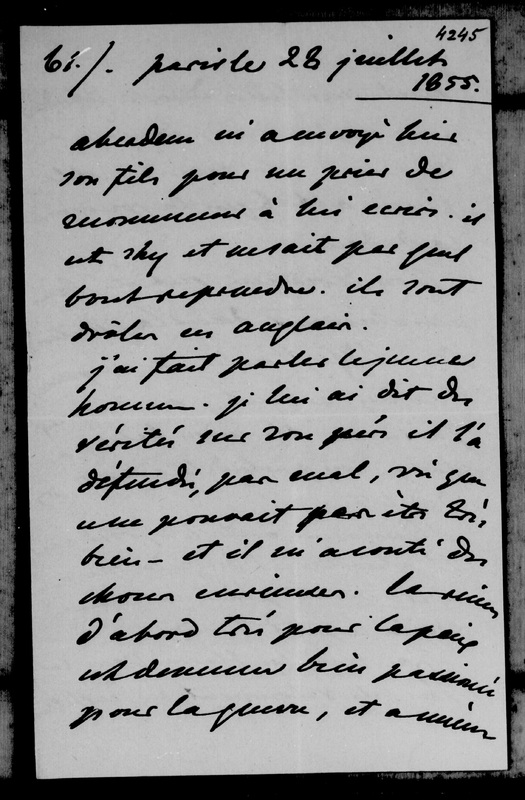 4245
61./. paris le 28 juillet
1855.
aberdeen m'a envoyé hier
son fils pour me prier de
recommencer à lui ecrire. il
est shy et ne sait par quel
bout reprendre. ils sont
drôles ces anglais.
j'ai fait parler le jeune
homme. je lui ai dit des
vérités sur son père il l'a
défendu, pas mal, vû que
ce ne pouvait pas être très
bien - et il m'a conté des
choses curieuses. la reine
d'abord très pour la paix
est devenue bien passionnée
pour la guerre, et a même